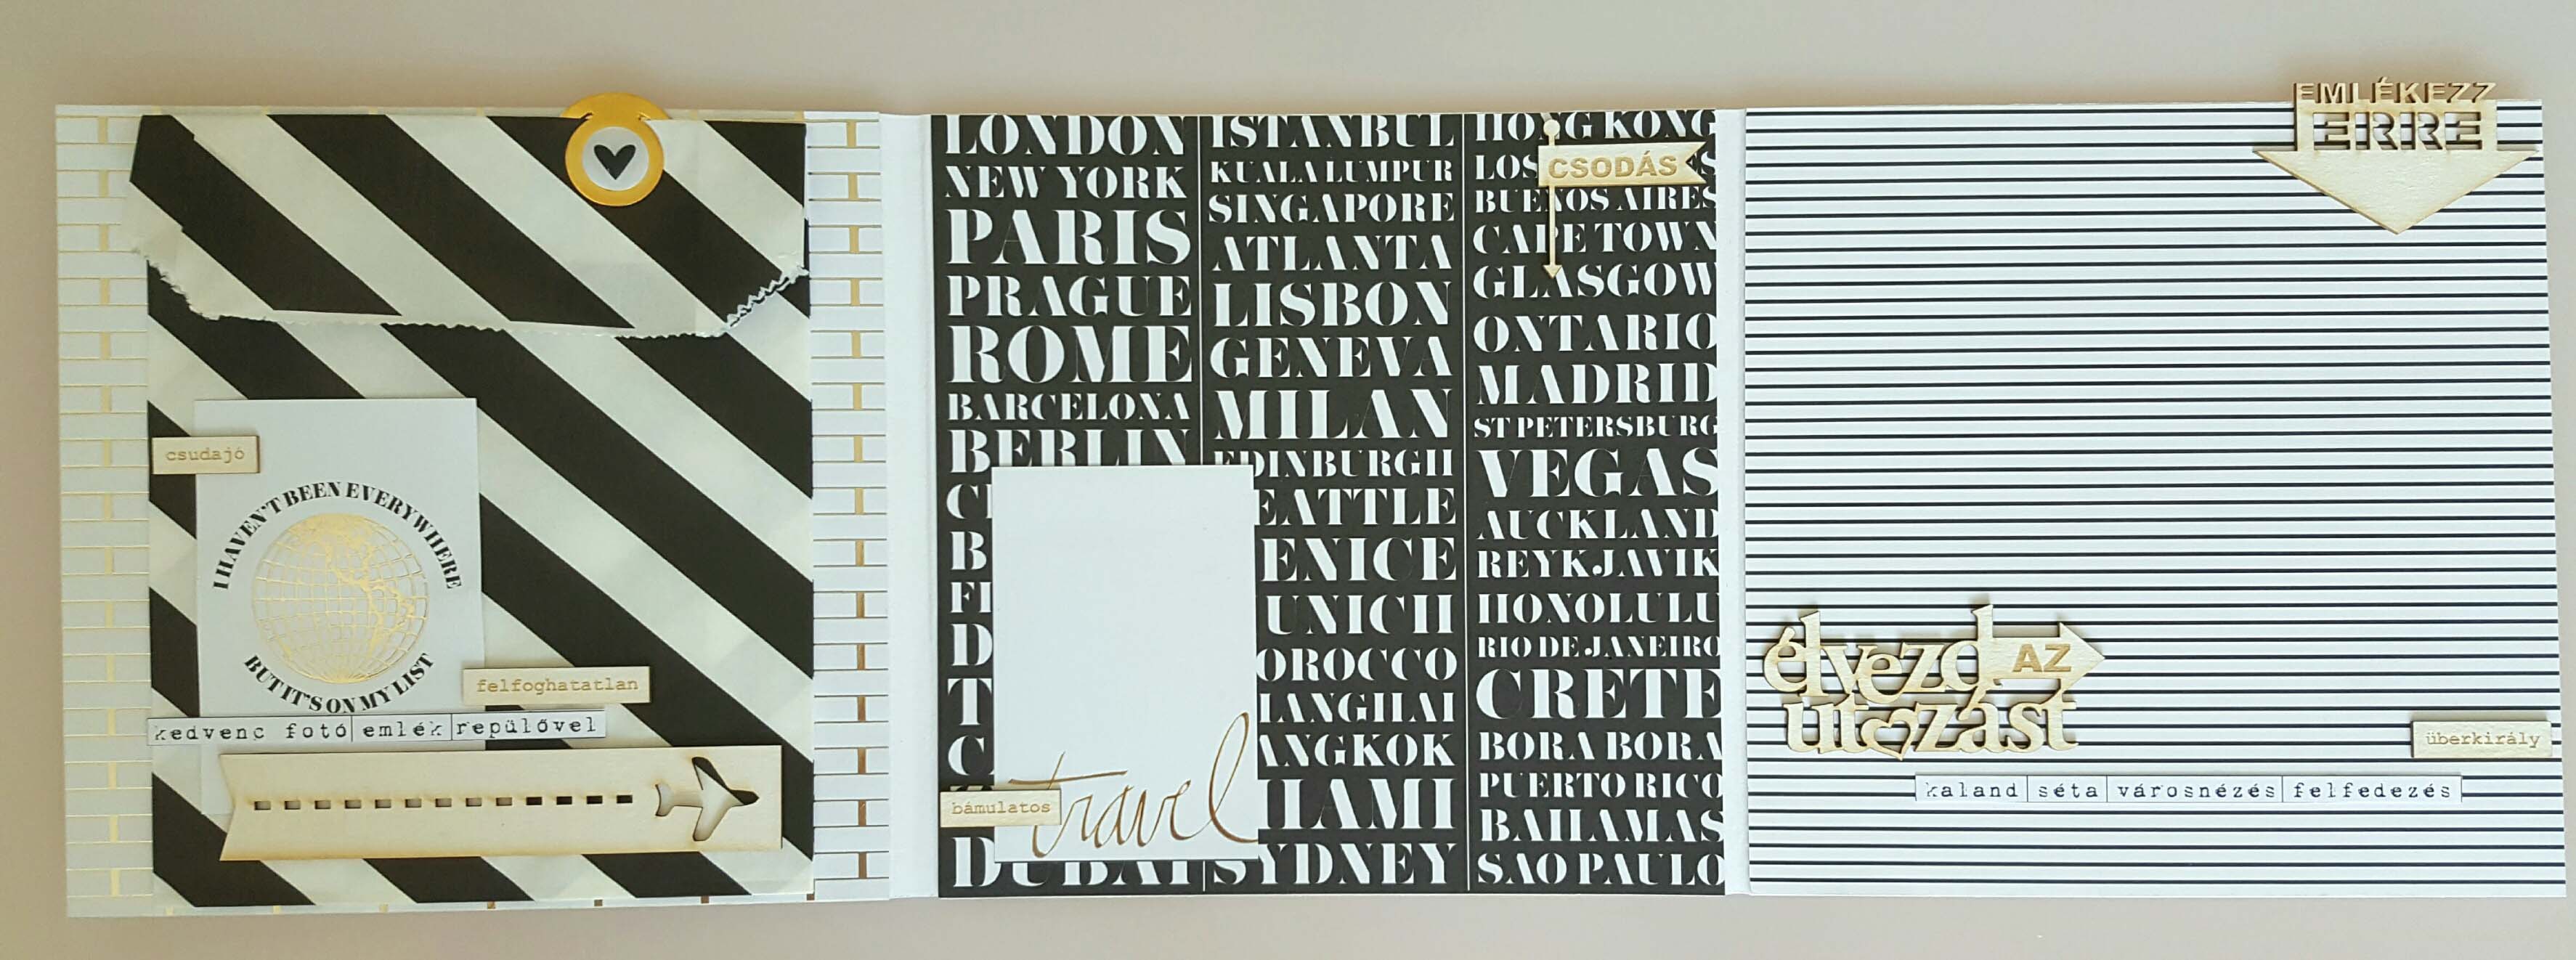 csudajó
I HAVEN'T BEEN EVERYWHERE
BUT IT'S ON MY LIST
felfoghatatlan
kedvenc fotó emlék repülővel
LONDON
NEW YORK
PARIS
PRAGUE
ROME
BARCELONA
BERLIN
C
B
FI
D
T
C
DUBAI
bámulatos
travel
ISTANBUL
KUALA LUMPUR
SINGAPORE
ATLANTA
LISBON
GENEVA
MILAN
EDINBURGH
EATTLE
ENICE
UNICH
OROCCO
HANGHAI
ANGKOK
IAMI
SYDNEY
HONG KONG
CSODÁS
LOS ES
BUENOS AIRES
CAPE TOWN
GLASGOW
ONTARIO
MADRID
ST PETERSBURG
VEGAS
AUCKLAND
REYKJAVIK
HONOLULU
RIO DE JANEIRO
CRETE
BORA BORA
PUERTO RICO
BAHAMAS
SAO PAULO
EMLÉKEZZ
ERRE
élvezd AZ
utazást
überkirály
kaland séta városnézés felfedezés